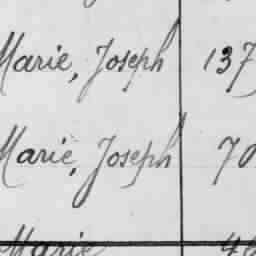 Marie, Joseph 137
Marie, Joseph 70
Marie